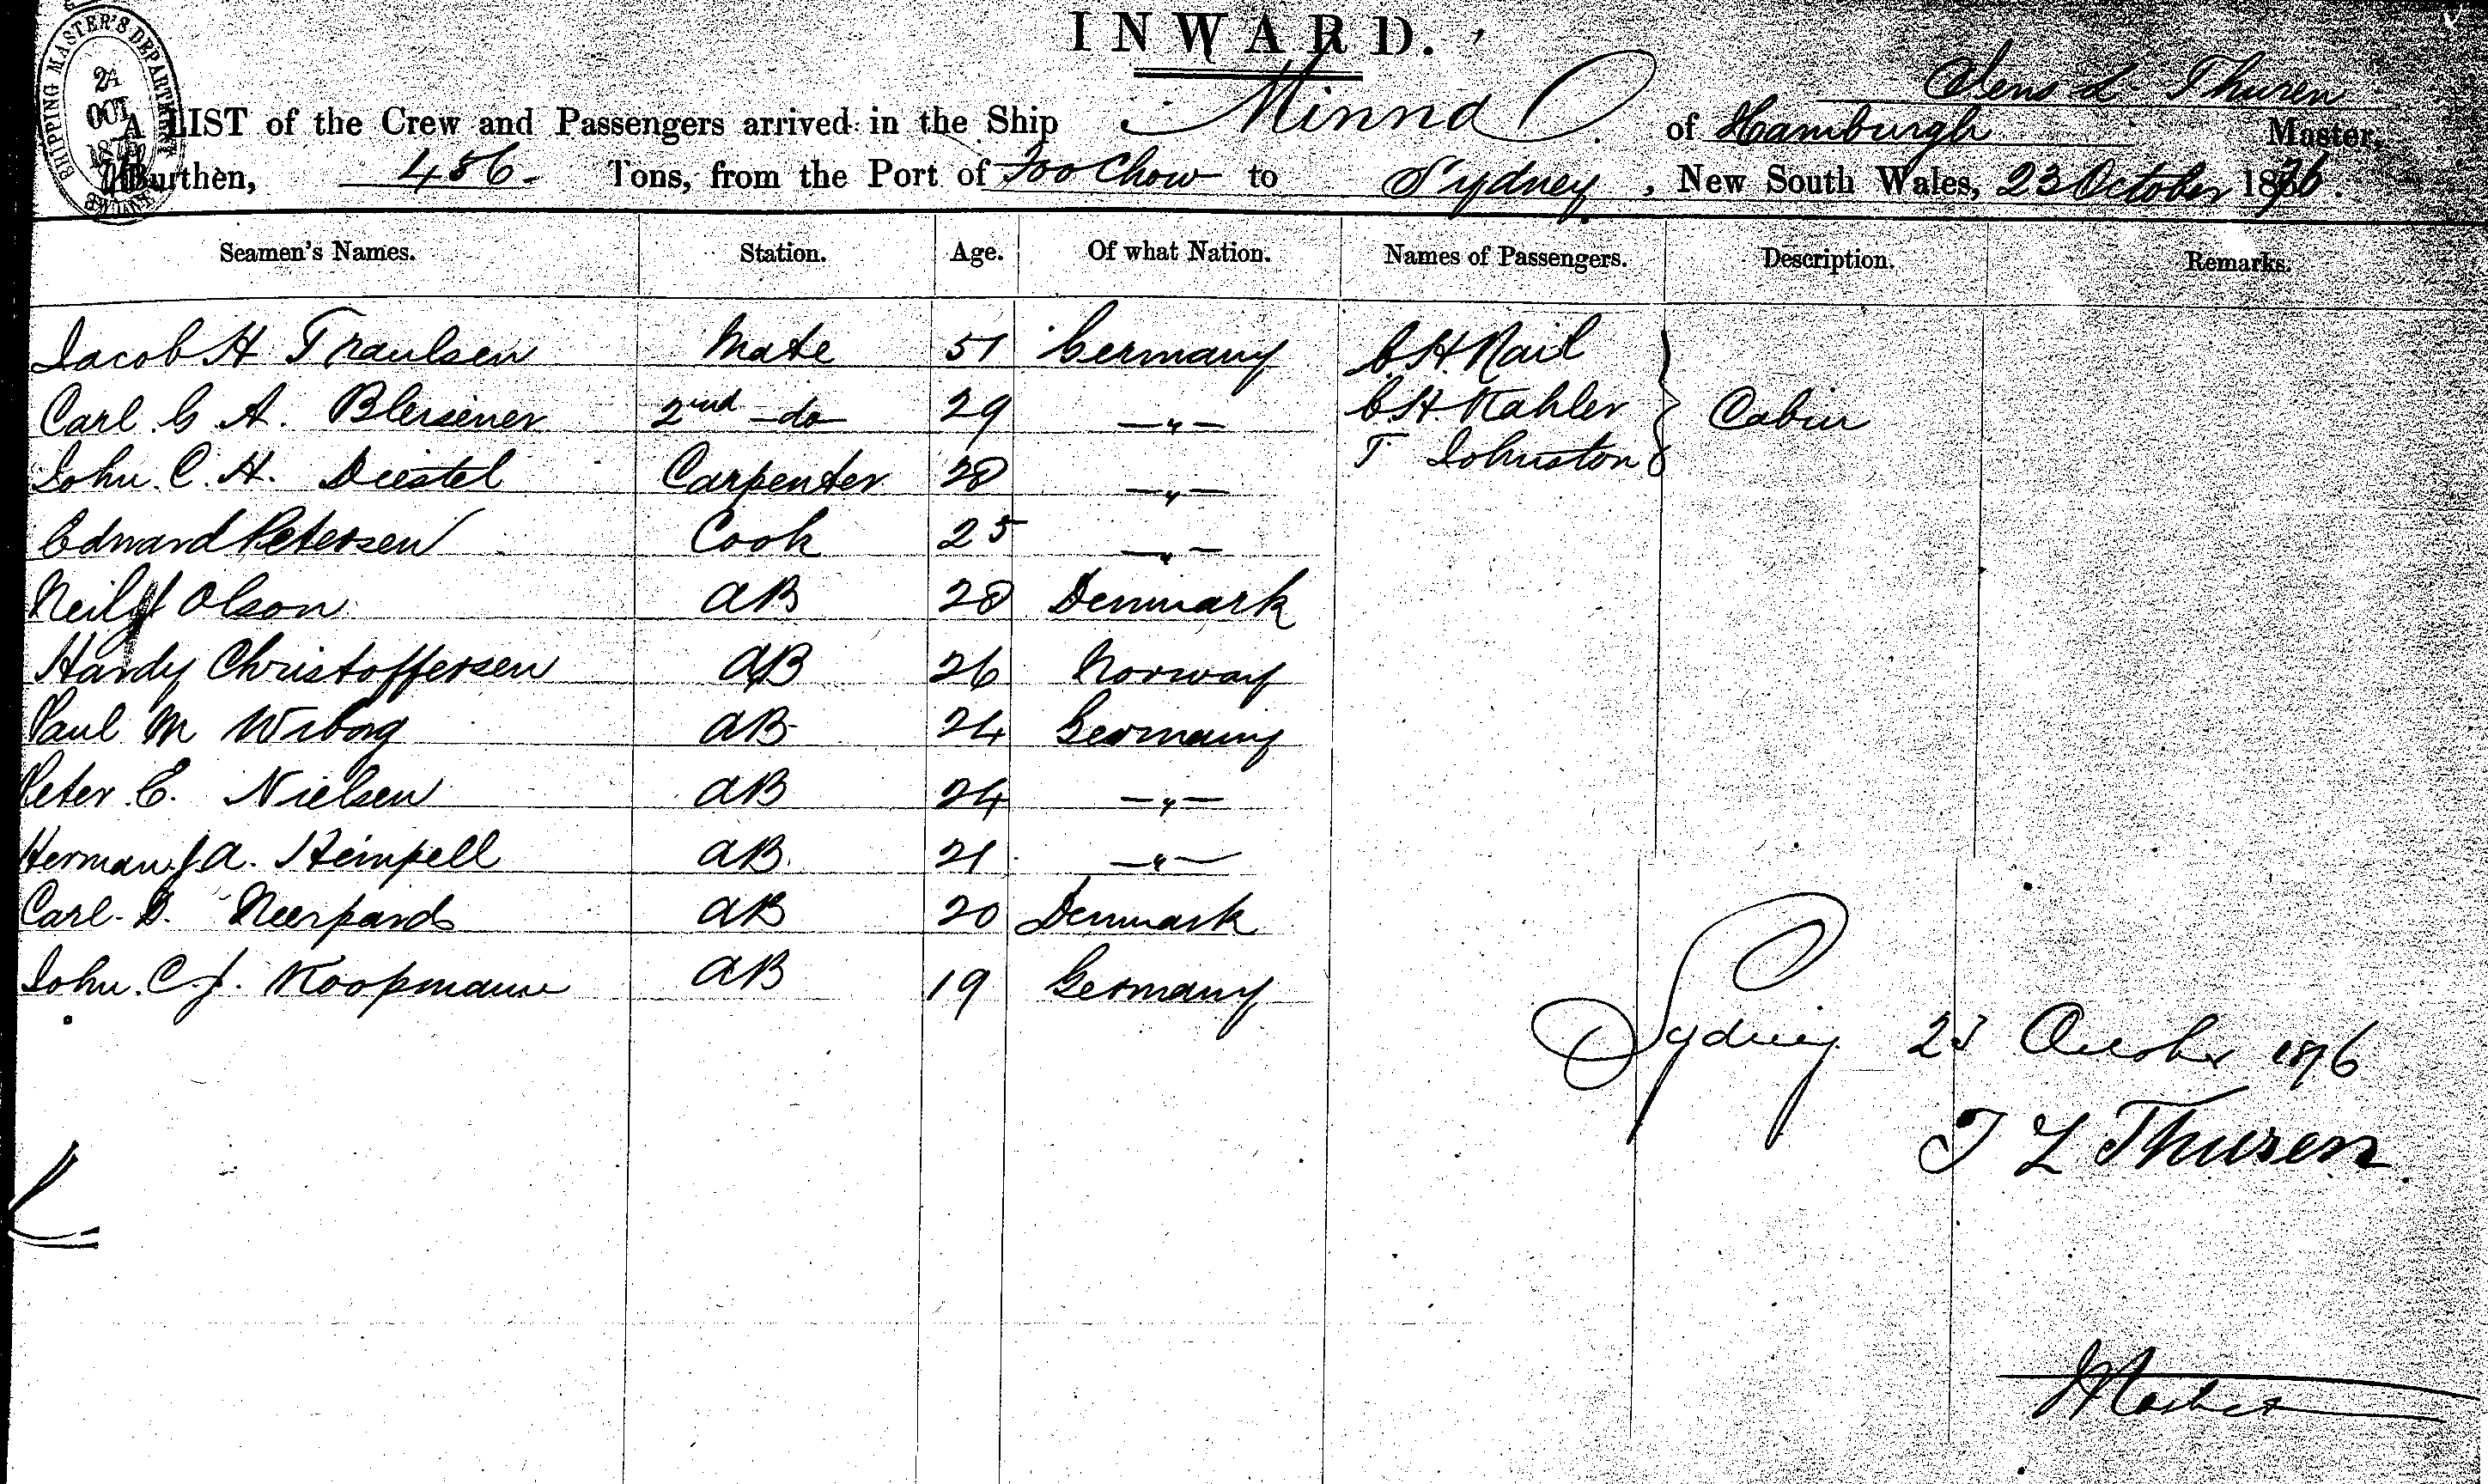 SHIPPING MASTER'S DEPARTMENT
24
OCT
187
INWARD.
Jens L. Thuren
A LIST of the Crew and Passengers arrived in the Ship Minna of Hamburgh Master,
Burthen, 456 Tons, from the Port of Foo Chow to Sydney, New South Wales, 23 October 1876.
Seamen's Names. Station. Age. Of what Nation. Names of Passengers. Description. Remarks.
Jacob H Traulsen Mate 51 Germany C. H. Nail
Carl G A. 2nd do 29 —"— C. H. Kahler Cabin
John. C. H. Diestel Carpenter 28 —"— T Johnston
Edward Petersen Cook 25 —"—
Neils Olson AB 28 Denmark
Hardy Christoffersen AB 26 Norway
Paul M Wiborg AB 24 Germany
Peter E. Nielsen AB 24 —"—
Herman J. A. Heimpell AB 21 —"—
Carl. D. AB 20 Denmark
John. C. J. Koopmann AB 19 Germany
Sydney 23 October 1876
J L Thuren
Master